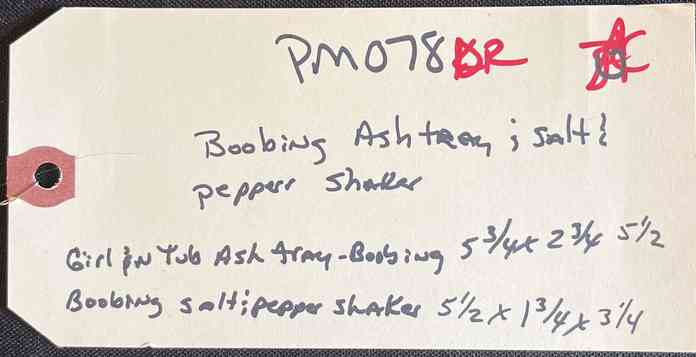 PM078DR
Boobing Ashtray ; salt &
pepperr Shaker
Girl in Tub Ash tray-Boobing 5 3/4 x 2 3/4 5 1/2
Boobing salt;pepper shaker 5 1/2 x 1 3/4 x 3 1/4